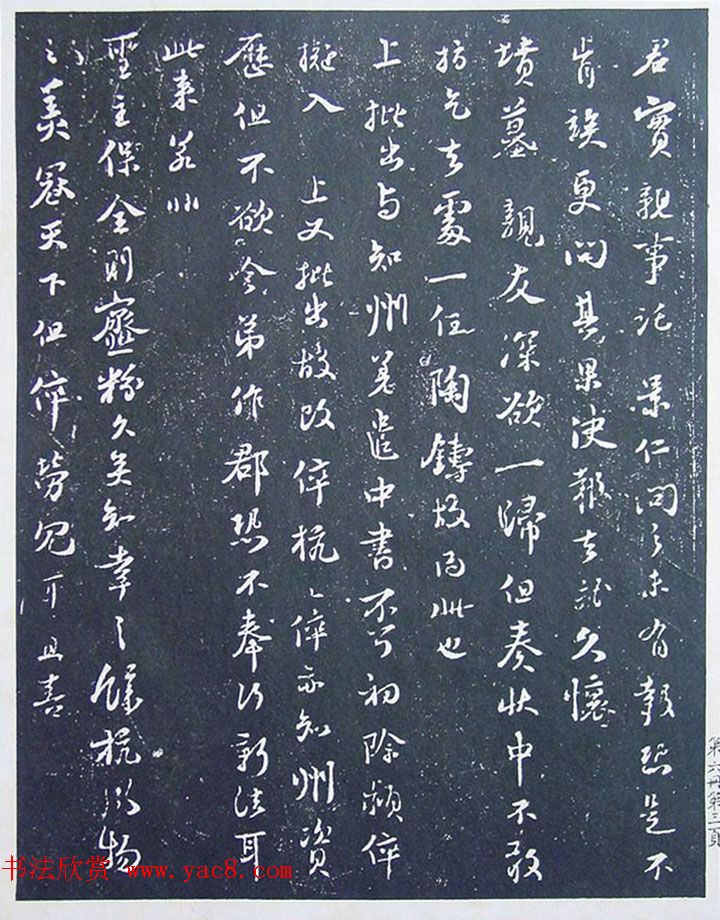 君實親事託景仁問之未有報恐是不
肯諾更問其果決報去軾久懷
墳墓 親友深欲一歸但奏狀中不敢
指乞去處一任陶鑄故得此也
上批出與知州差遣中書不可初除潁倅
擬入 上又批出故改倅杭〻倅亦知州資
歷但不欲令弟作郡恐不奉行新法耳
此來若非
聖主保全則齏粉久矣知幸〻餘杭風物
之美冠天下但倅勞冗耳且喜
第六冊第三頁
书法欣赏 www.yac8.com